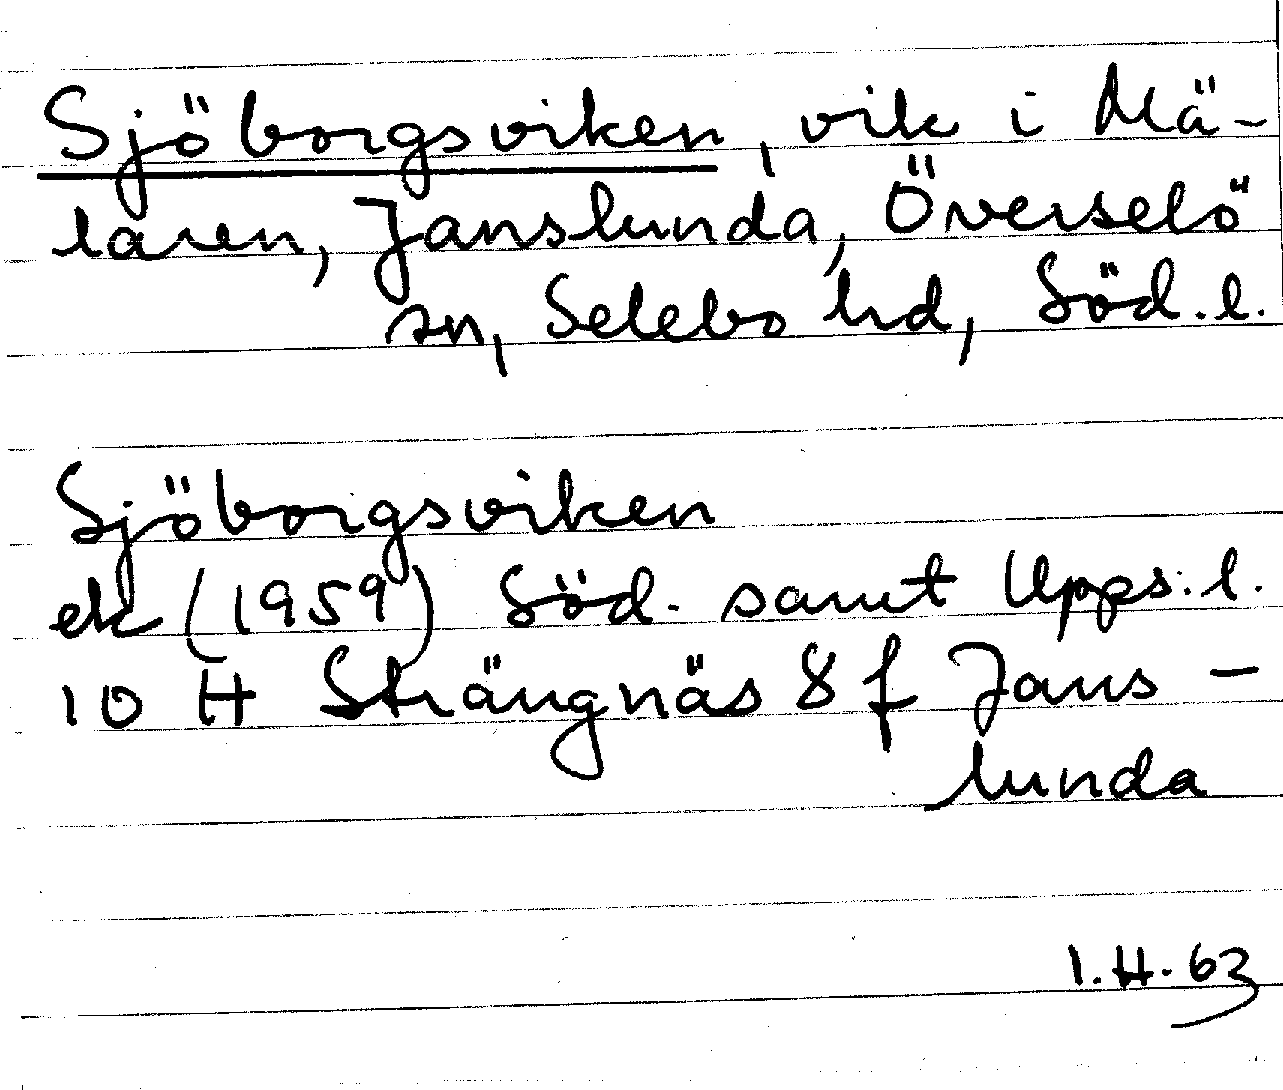 Sjöborgsviken, vik i Mä-
laren, Janslunda, Överselö
sn, Selebo hd, Söd.l.
Sjöborgsviken
ek (1959) Söd. samt Upps.l.
10 H Strängnäs 8 f Jans-
lunda
I.H. 63